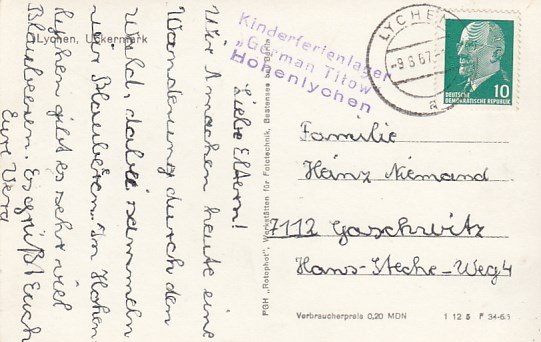 Lychen, Uckermark
Liebe Eltern!
Wir machen heute eine
Wanderung durch den
Wald, dabei sammeln
wir Blaubeeren. In Hohen
lychen gibt es sehr viel
Blaubeeren Es grüßt Euch
Eure Vera
Kinderferienlager
„German Titow“
Hohenlychen
LYCHEN
-9.8.67-
a
10
DEUTSCHE
DEMOKRATISCHE REPUBLIK
Familie
Heinz Niemand
7112 Gaschwitz
Hans-Steche-Weg 4
PGH „Rotophot“, Werkstätten für Fototechnik, Bestensee bei Berlin
Verbraucherpreis 0,20 MDN
1 12 6 P 34-6/1